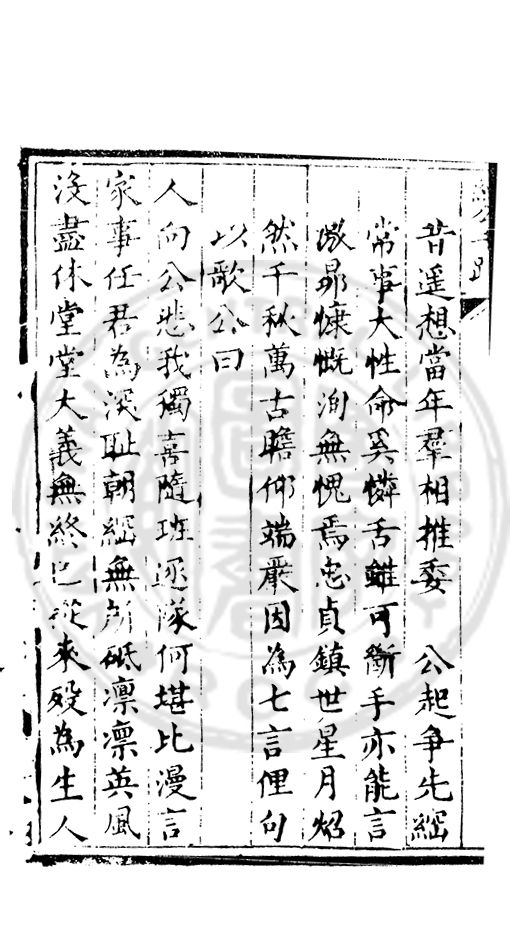 昔遥想當年羣相推委　公起爭先綱
常事大性命奚憐舌雖可斷手亦能言
激昻慷慨洵無愧焉忠貞鎮世星月炤
然千秋萬古瞻仰端嚴因為七言俚句
以歌公曰
人向公悲我獨喜隨班逐隊何堪比漫言
家事任君為深耻朝綱無所砥凛凛英風
沒盡休堂堂大義無終已從來殁為生人